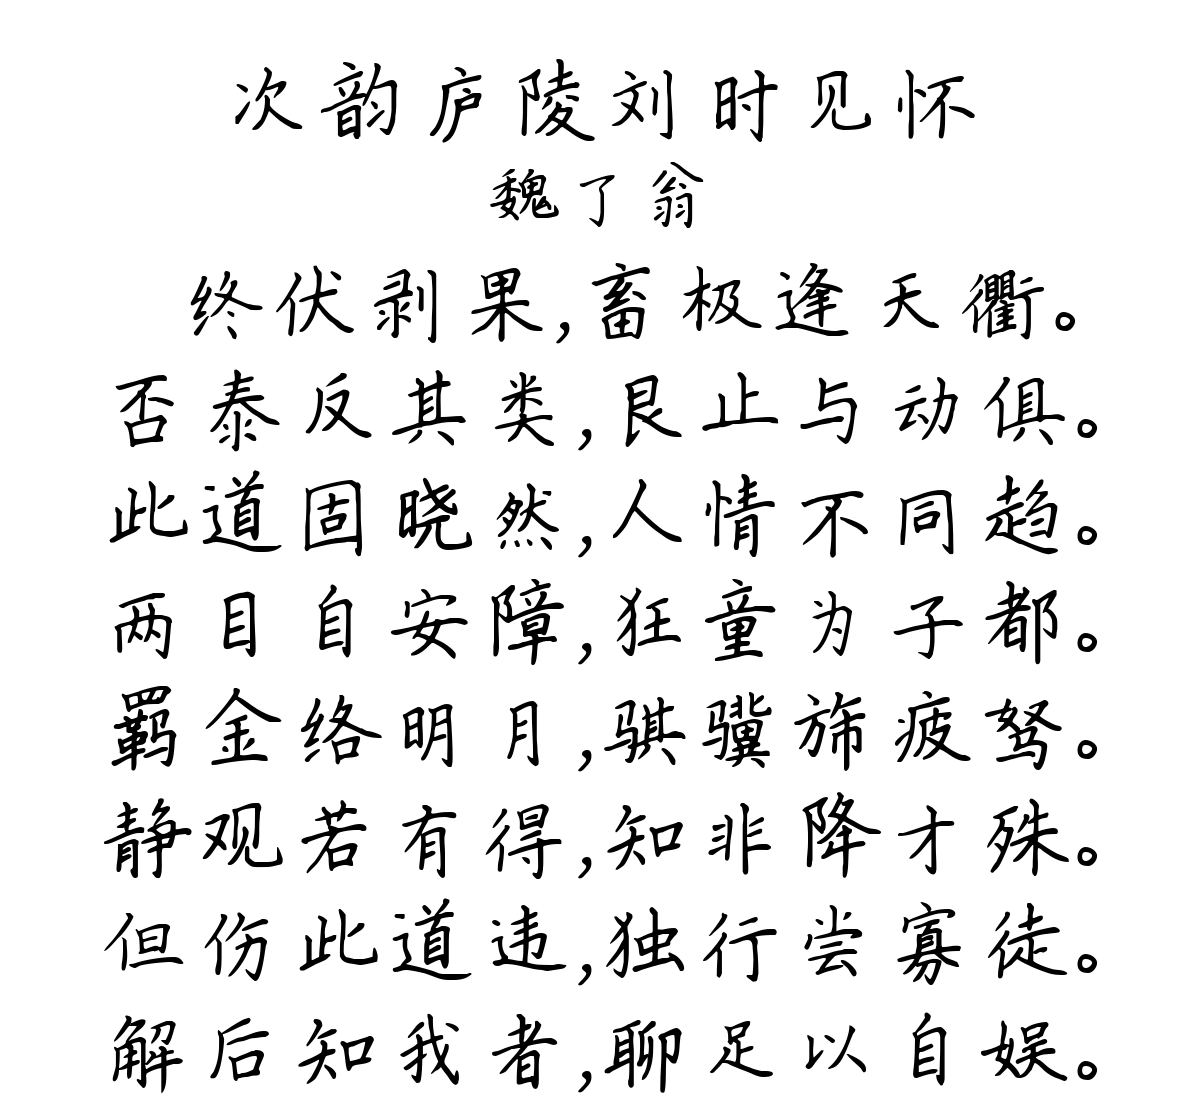 次韵庐陵刘时见怀
魏了翁
终伏剥果,畜极逢天衢。
否泰反其类,艮止与动俱。
此道固晓然,人情不同趋。
两目自安障,狂童为子都。
羁金络明月,骐骥旆疲驽。
静观若有得,知非降才殊。
但伤此道违,独行尝寡徒。
解后知我者,聊足以自娱。